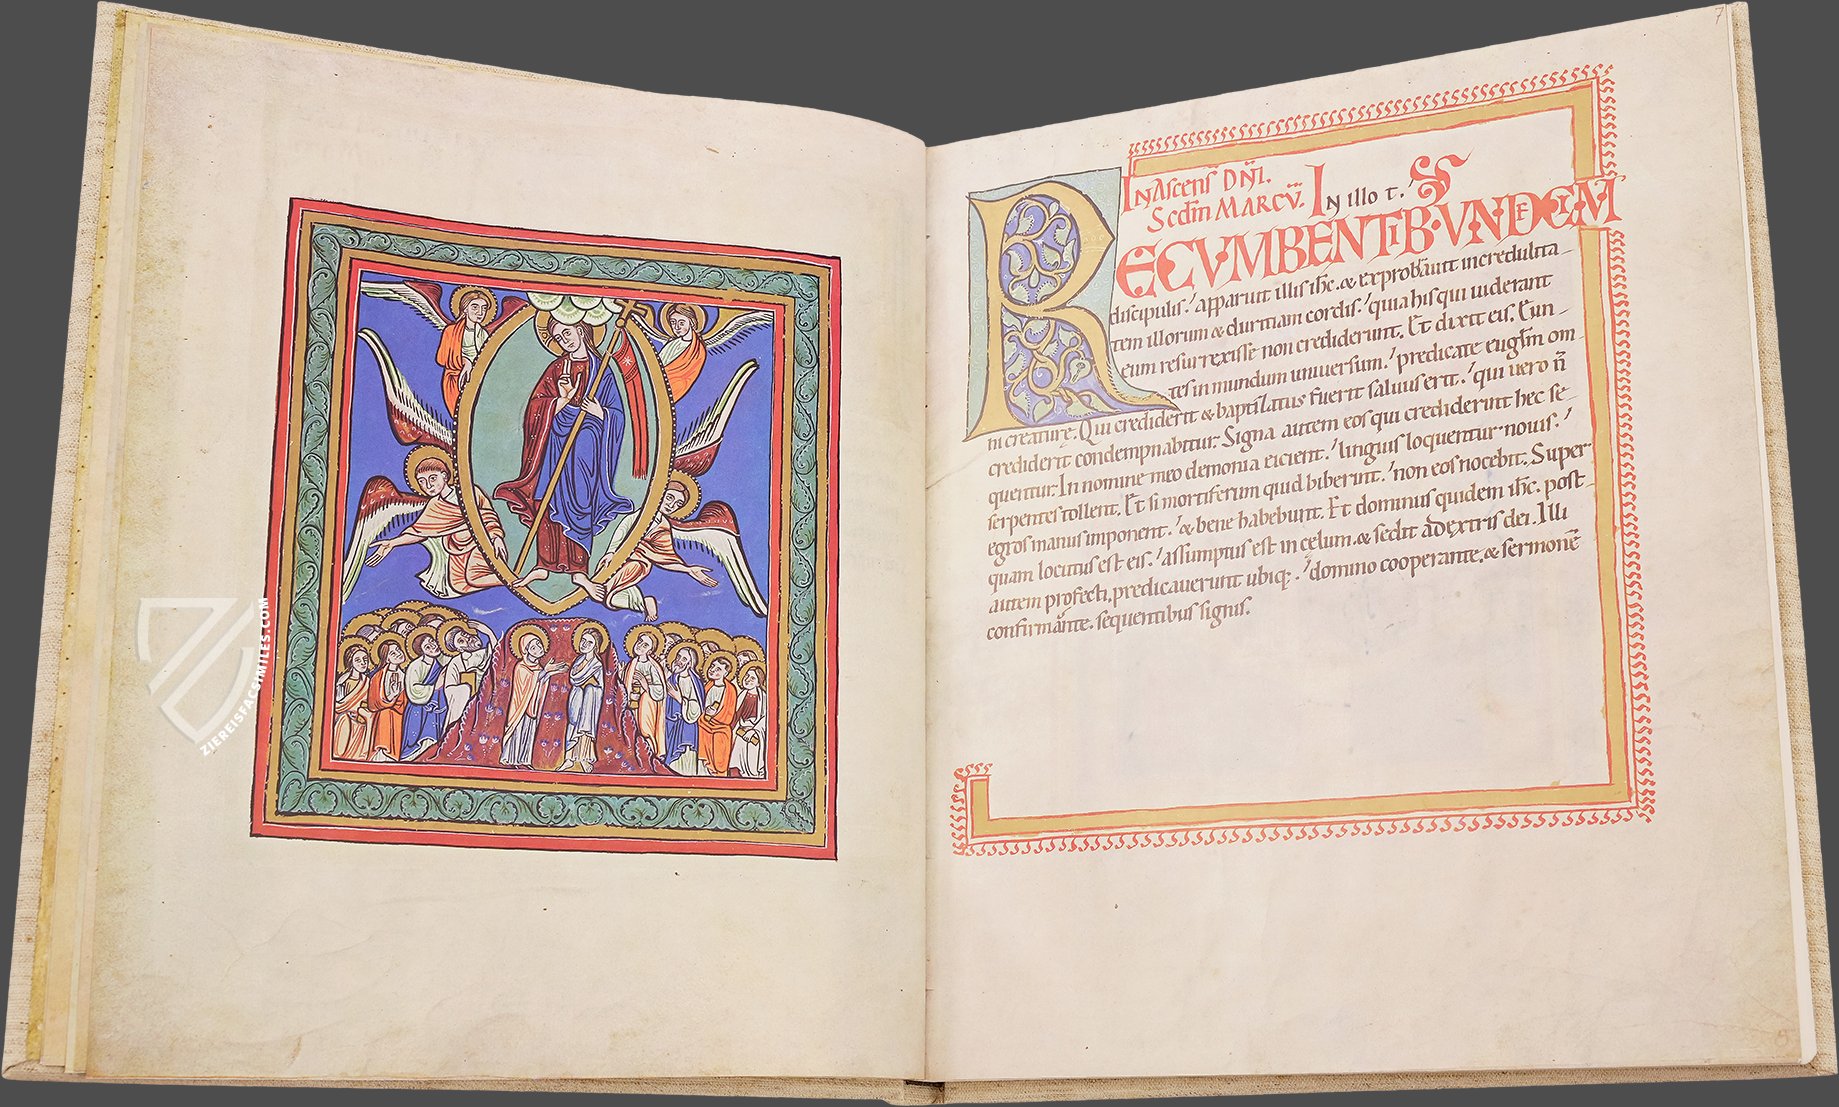 ZIEREISFACSIMILES.COM
7
IN Ascens̄ DN̄I.
Scdm̄ MARCV̄. IN illo t.
RECVMBENTIB. VNDECIM
discipulis. apparuit illis ih̄c. & exprobrauit incredulita
tem illorum & duritiam cordis. quia his qui uiderant
eum resurrexisse non crediderunt. Et dixit eis. Eun
tes in mundum uniuersum. predicate eugl̄m om
ni creature. Qui crediderit & baptizatus fuerit saluus erit. qui uero n̄
crediderit condempnabitur. Signa autem eos qui crediderint hec se
quentur. In nomine meo demonia eicient. linguis loquentur nouis.
serpentes tollent. Et si mortiferum quid biberint. non eos nocebit. Super
egros manus imponent. & bene habebunt. Et dominus quidem ih̄c. post
quam locutus est eis. assumptus est in celum. & sedit adextris dei. Illi
autem profecti, predicauerunt ubiq;. domino cooperante. & sermonē
confirmante. sequentibus signis.